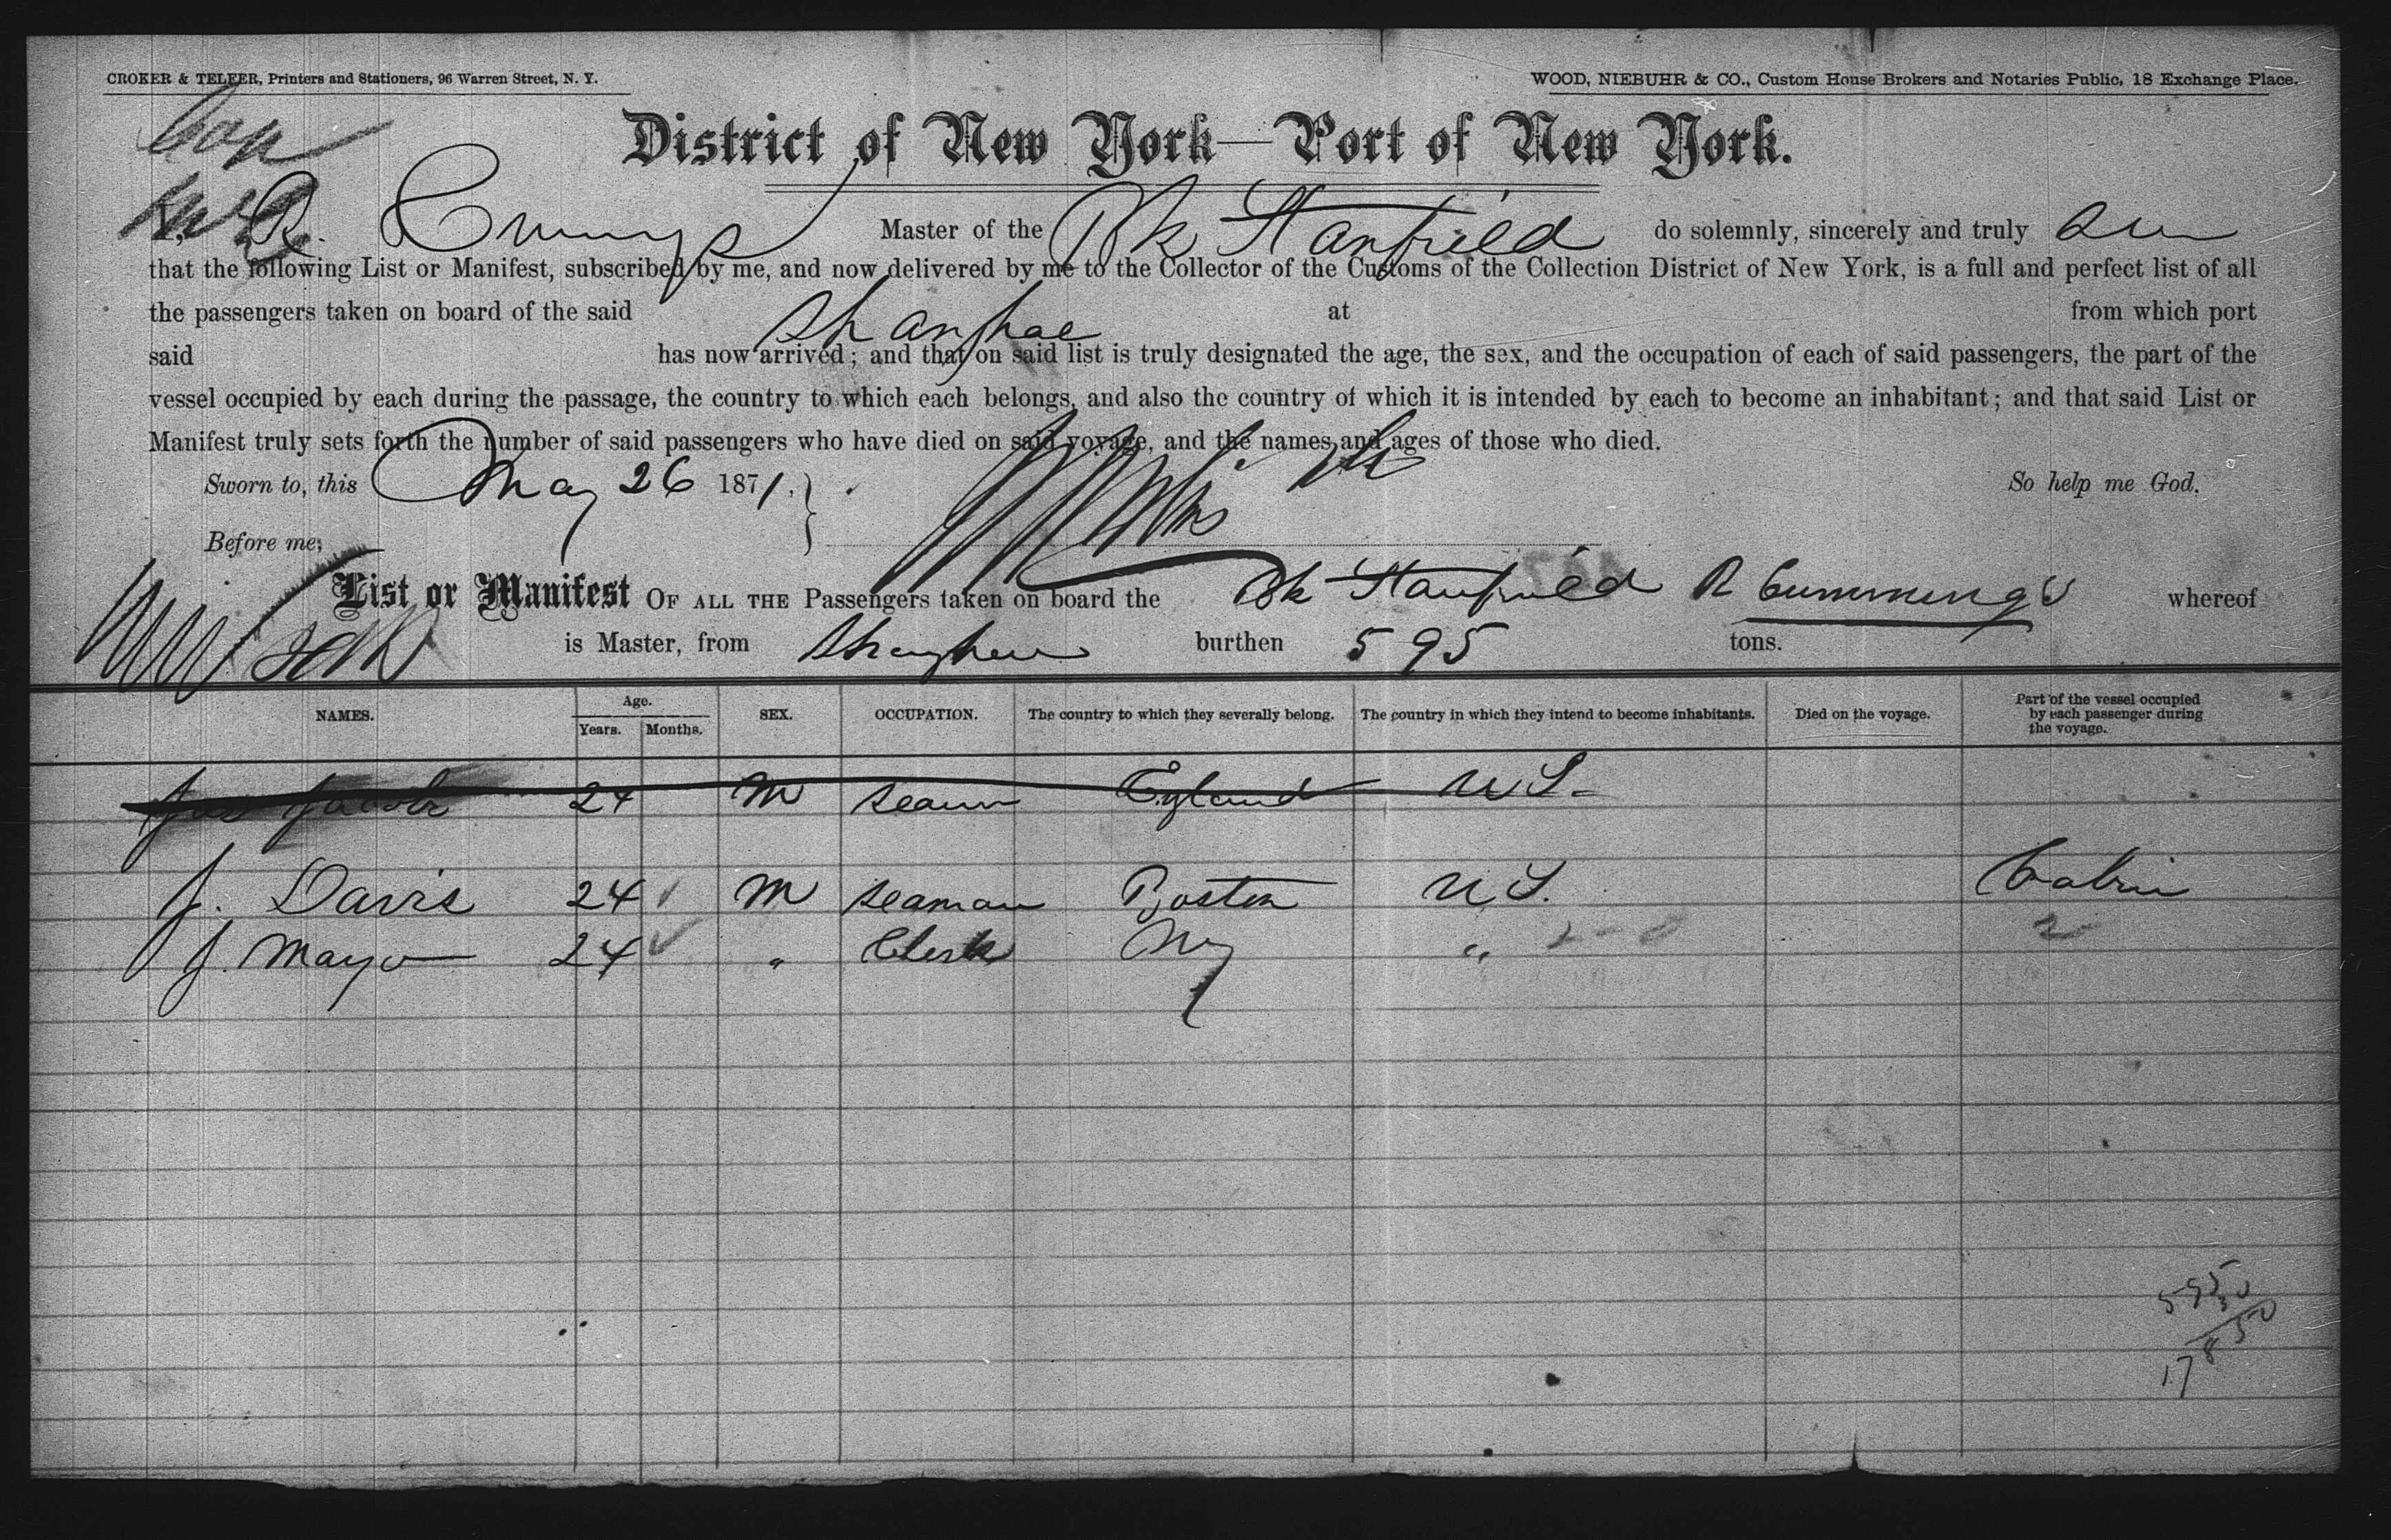 CROKER & TELFER, Printers and Stationers, 96 Warren Street, N. Y.
WOOD, NIEBUHR & CO., Custom House Brokers and Notaries Public, 18 Exchange Place.
District of New York—Port of New York.
I, R. Cummings Master of the Bk Stanfield do solemnly, sincerely and truly
that the following List or Manifest, subscribed by me, and now delivered by me to the Collector of the Customs of the Collection District of New York, is a full and perfect list of all
the passengers taken on board of the said Shanghae at from which port
said has now arrived; and that on said list is truly designated the age, the sex, and the occupation of each of said passengers, the part of the
vessel occupied by each during the passage, the country to which each belongs, and also the country of which it is intended by each to become an inhabitant; and that said List or
Manifest truly sets forth the number of said passengers who have died on said voyage, and the names and ages of those who died.
Sworn to, this May 26 1871. So help me God.
Before me;
List or Manifest OF ALL THE Passengers taken on board the Bk Stanfield R Cummings whereof
is Master, from Shanghae burthen 595 tons.
NAMES. Age. Years. Months. SEX. OCCUPATION. The country to which they severally belong. The country in which they intend to become inhabitants. Died on the voyage. Part of the vessel occupied by each passenger during the voyage.
Jacobs 24 M Seaman England U S -
J. Davis 24 M Seaman Boston U S. Cabin
J. Mayo 24 " Clerk NY " 2
5950
3
17850